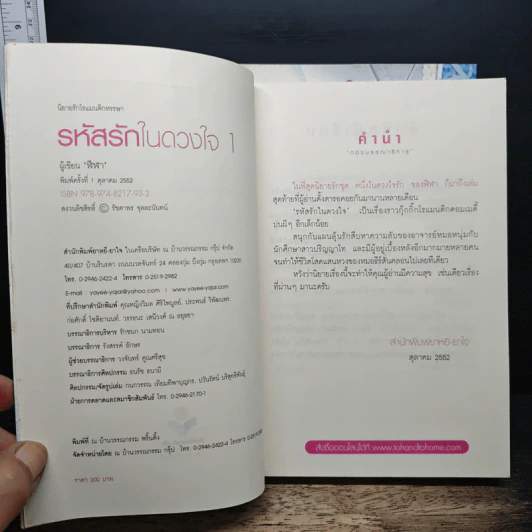 นิยายรักโรแมนติกหรรษา
รหัสรักในดวงใจ 1
ผู้เขียน "ฬีฬา"
พิมพ์ครั้งที่ 1 ตุลาคม 2552
ISBN 978-974-8217-93-2
สงวนลิขสิทธิ์ © รัชดาพร จุลละนันทน์
สำนักพิมพ์ยาหยี-ยาใจ ในเครือบริษัท ณ บ้านวรรณกรรม กรุ๊ป จำกัด
40/407 บ้านรินรดา ถนนนวลจันทร์ 24 คลองกุ่ม บึงกุ่ม กรุงเทพฯ 10230
โทร. 0-2946-2422-4 โทรสาร 0-2519-2982
E-mail : yayee-yajai@yahoo.com // www.yayee-yajai.com
ที่ปรึกษาสำนักพิมพ์ คุณหญิงวิมล ศิริไพบูลย์,
บรรณาธิการบริหาร รักชนก นามทอน
บรรณาธิการ รังสรรค์ อักษร
ผู้ช่วยบรรณาธิการ วงจันทร์ คูณศรีสุข
บรรณาธิการศิลปกรรม ธนรัช ธนามี
ศิลปกรรม/จัดรูปเล่ม
ฝ่ายการตลาดและสมาชิกสัมพันธ์ โทร. 0-2946-2170-1
พิมพ์ที่ ณ บ้านวรรณกรรม พริ้นติ้ง
จัดจำหน่ายโดย ณ บ้านวรรณกรรม กรุ๊ป โทร. 0-2946-2422-4 โทรสาร
ราคา 200 บาท
คำนำ
"กองบรรณาธิการ"
ในที่สุดนิยายรักชุด หนึ่งในดวงใจรัก ของฬีฬา ก็มาถึงเล่ม
สุดท้ายที่ผู้อ่านตั้งตารอคอยกันมานานหลายเดือน
'รหัสรักในดวงใจ' เป็นเรื่องราวกุ๊กกิ๊กโรแมนติกคอมเมดี้
ปนฝีๆ อีกเล็กน้อย
สนุกกับแผนลุ้นรักสืบหาความลับของอาจารย์หมอหนุ่มกับ
นักศึกษาสาวปริญญาโท และมีผู้อยู่เบื้องหลังอีกมากมายหลายคน
จนทำให้ชีวิตโสดแสนหวงของหมอธีร์สั่นคลอนไปเลยทีเดียว
หวังว่านิยายเรื่องนี้จะทำให้คุณผู้อ่านมีความสุข เช่นเดียวเรื่อง
ที่ผ่านๆ มานะครับ
สำนักพิมพ์ยาหยี-ยาใจ
ตุลาคม 2552
สั่งซื้อออนไลน์ได้ที่ www.tohandtohome.com